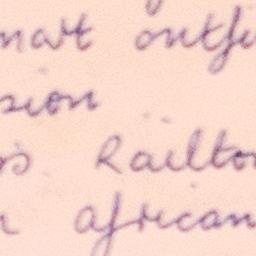 mart outfi
sion
Railto
r african